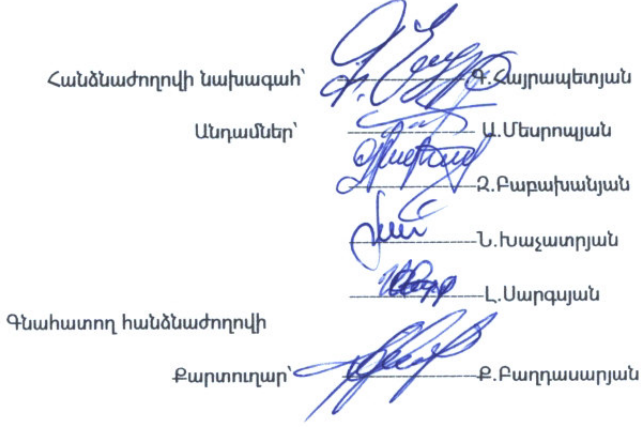 Հանձնաժողովի նախագահ՝ Գ.Հայրապետյան
Անդամներ՝ Ա.Մեսրոպյան
Զ.Բաբախանյան
Ն.Խաչատրյան
Լ.Սարգսյան
Գնահատող հանձնաժողովի
Քարտուղար՝ Ք.Բաղդասարյան